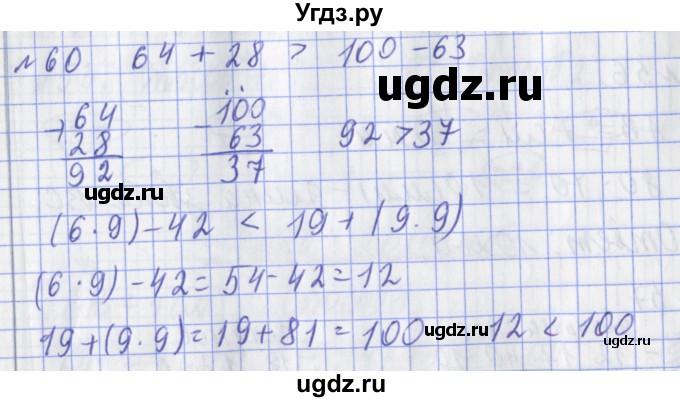 Угдз.ру
№60 64 + 28 > 100 - 63
ugdz.ru
+ 64
28
92
- 100
63
37
92 > 37
ugdz.ru
(6 · 9) - 42 < 19 + (9 · 9)
(6 · 9) - 42 = 54 - 42 = 12
19 + (9 · 9) = 19 + 81 = 100 12 < 100
ugdz.ru
ugdz.ru
ugdz.ru